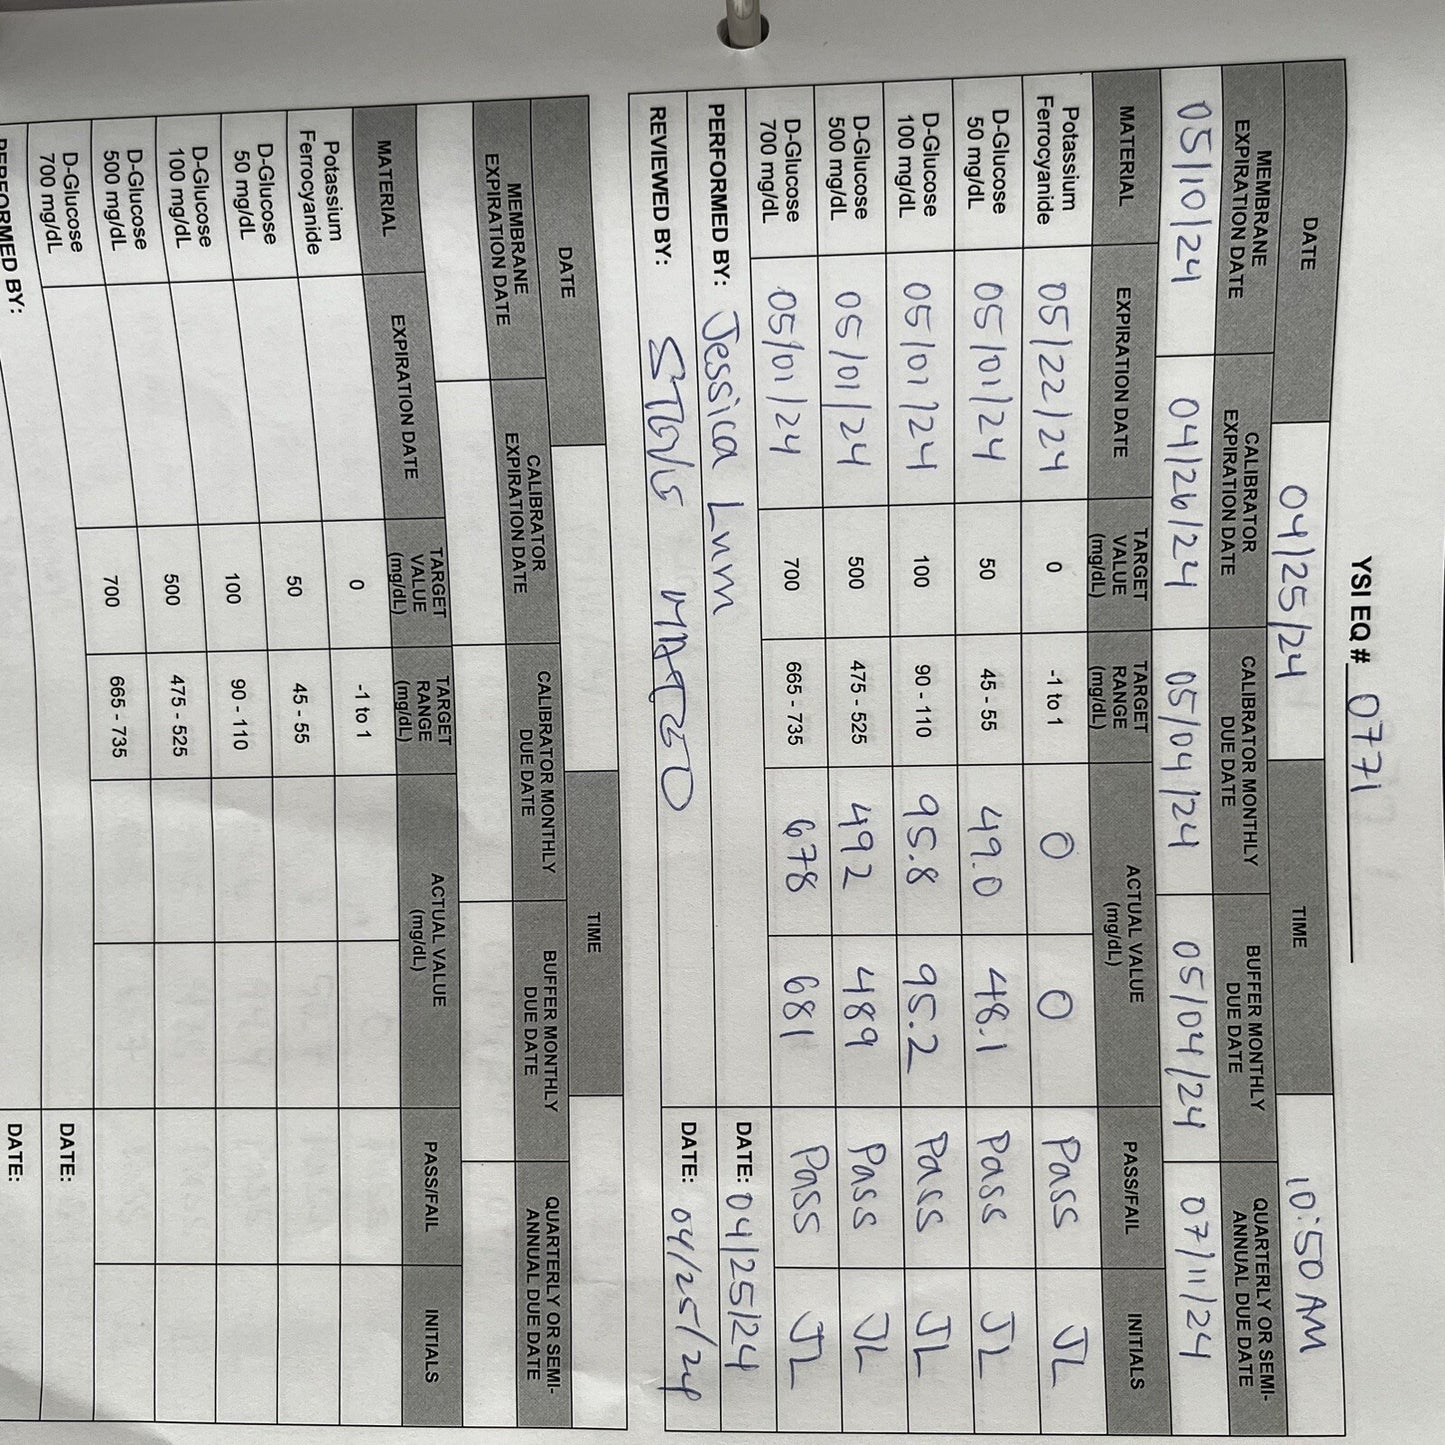 YSI EQ # 0771
DATE 04/25/24 TIME 10:50 AM
MEMBRANE EXPIRATION DATE CALIBRATOR EXPIRATION DATE CALIBRATOR MONTHLY DUE DATE BUFFER MONTHLY DUE DATE QUARTERLY OR SEMI-ANNUAL DUE DATE
05/10/24 04/26/24 05/04/24 05/04/24 07/11/24
MATERIAL EXPIRATION DATE TARGET VALUE (mg/dL) TARGET RANGE (mg/dL) ACTUAL VALUE (mg/dL) PASS/FAIL INITIALS
Potassium Ferrocyanide 05/22/24 0 -1 to 1 0 0 Pass JL
D-Glucose 50 mg/dL 05/01/24 50 45 - 55 49.0 48.1 Pass JL
D-Glucose 100 mg/dL 05/01/24 100 90 - 110 95.8 95.2 Pass JL
D-Glucose 500 mg/dL 05/01/24 500 475 - 525 492 489 Pass JL
D-Glucose 700 mg/dL 05/01/24 700 665 - 735 678 681 Pass JL
PERFORMED BY: Jessica Lum DATE: 04/25/24
REVIEWED BY: MATEO DATE: 04/25/24
DATE TIME
MEMBRANE EXPIRATION DATE CALIBRATOR EXPIRATION DATE CALIBRATOR MONTHLY DUE DATE BUFFER MONTHLY DUE DATE QUARTERLY OR SEMI-ANNUAL DUE DATE
MATERIAL EXPIRATION DATE TARGET VALUE (mg/dL) TARGET RANGE (mg/dL) ACTUAL VALUE (mg/dL) PASS/FAIL INITIALS
Potassium Ferrocyanide 0 -1 to 1
D-Glucose 50 mg/dL 50 45 - 55
D-Glucose 100 mg/dL 100 90 - 110
D-Glucose 500 mg/dL 500 475 - 525
D-Glucose 700 mg/dL 700 665 - 735
PERFORMED BY: DATE:
DATE: